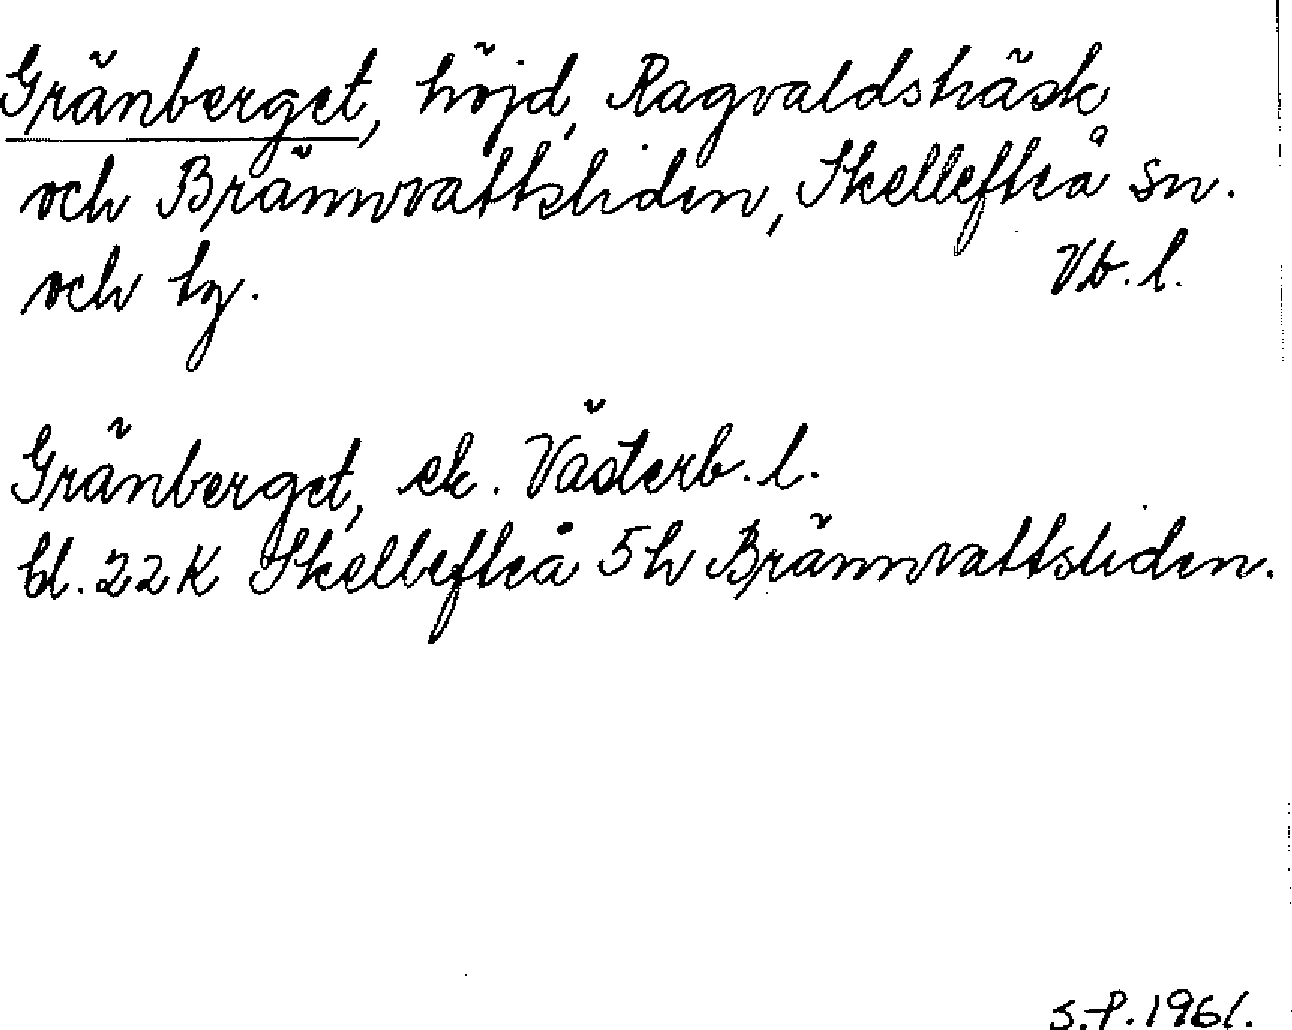 Gränberget, höjd, Ragvaldsträsk
och Brännvattsliden, Skellefteå sn.
och tg. Vb. l.
Gränberget, ek. Västerb. l.
bl. 22K Skellefteå 5h Brännvattsliden.
S.-P. 1961.